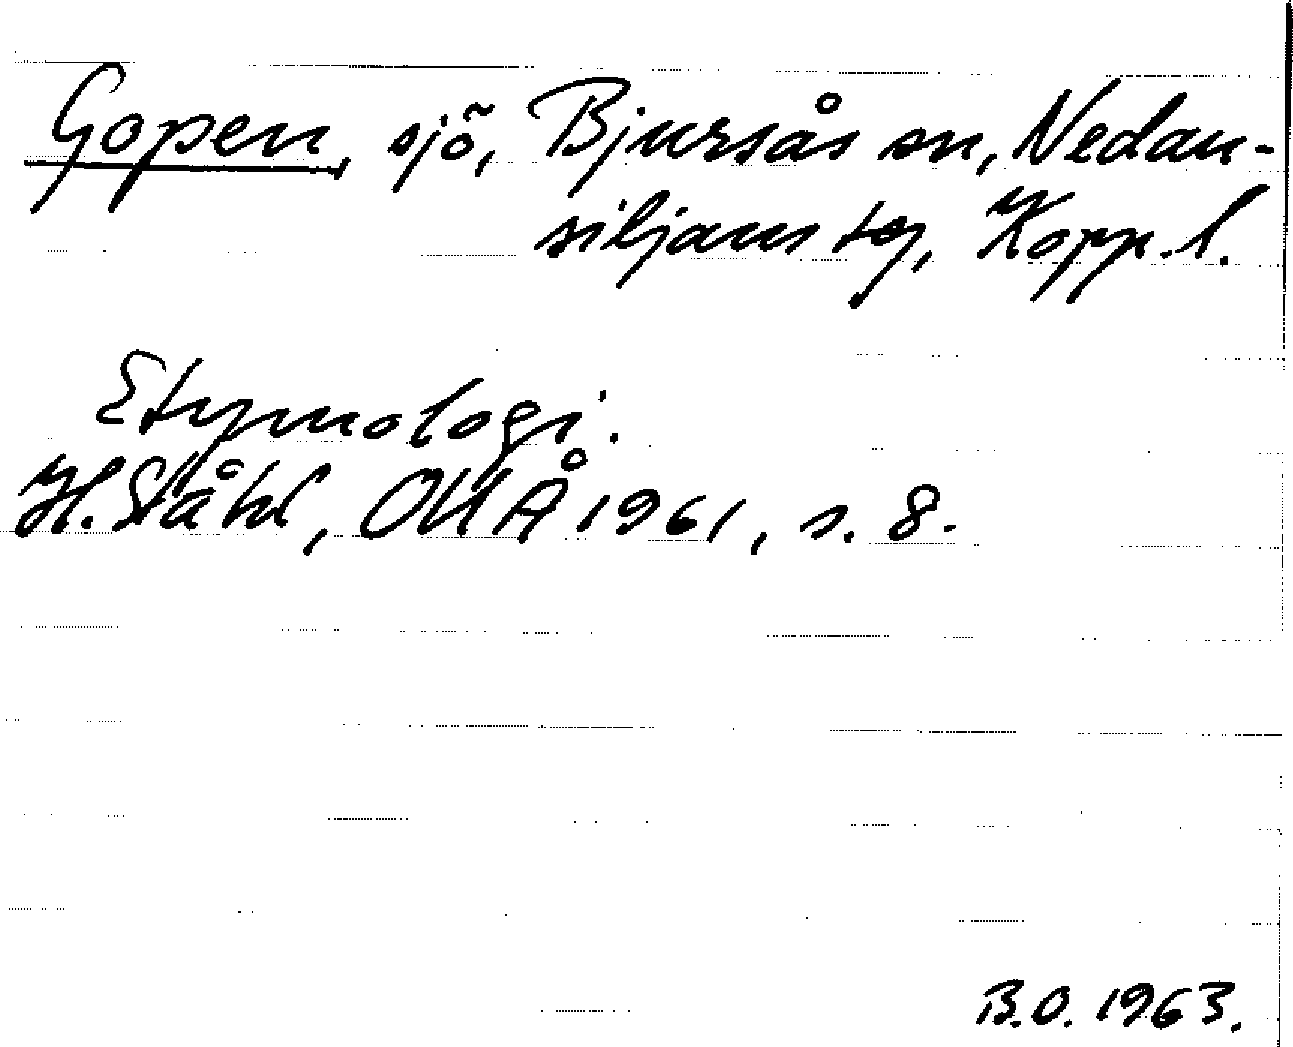 Gopen, sjö, Bjursås sn, Nedan-
siljans tg, Kopp. l.
Etymologi.
H. Ståhl, OUÅ 1961, s. 8.
B.O. 1963.